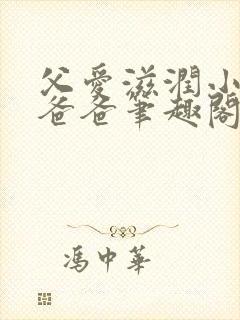 父愛滋潤小
爸爸筆趣閣
馮中華